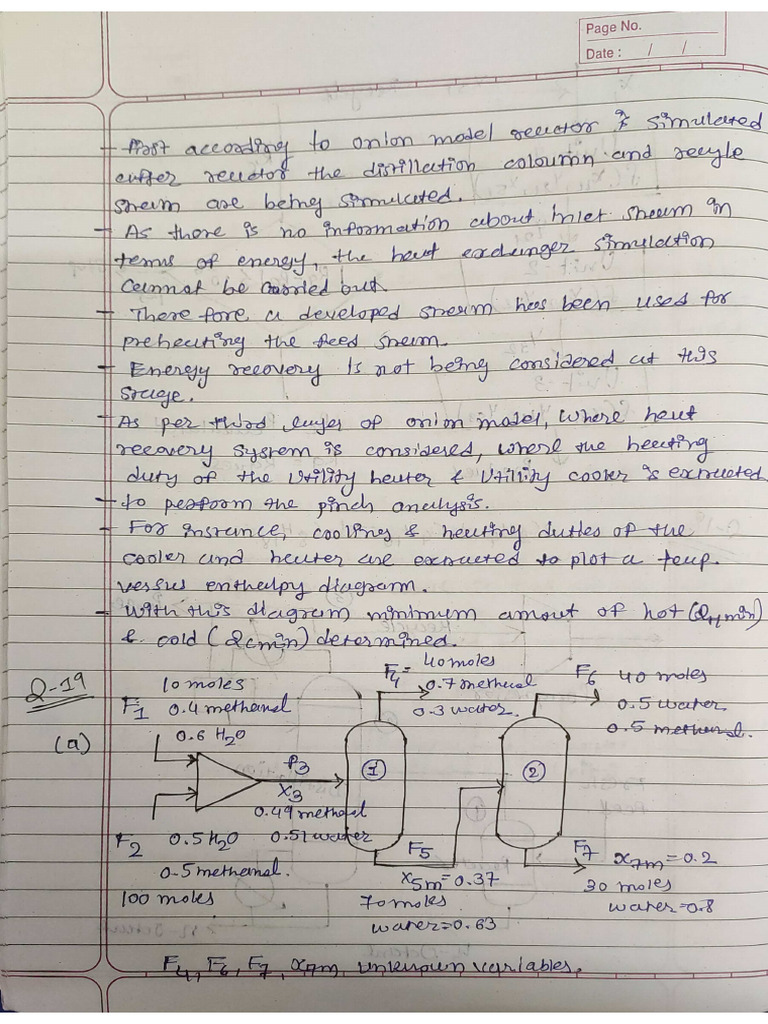 Page No.
Date : / /
- First according to onion model reactor is simulated
after reactor the distillation coloumn and recyle
stream are being simulated.
- As there is no information about inlet stream in
terms of energy, the heat exchanger simulation
cannot be carried out.
- There fore, a developed stream has been used for
preheating the feed stream.
- Energy recovery is not being considered at this
stage.
- As per third layer of onion model, where heat
recovery system is considered, where the heating
duty of the utility heater & utility cooler is extracted
- to perform the pinch analysis.
- For instance, cooling & heating duties of the
cooler and heater are extracted to plot a temp.
versus enthalpy diagram.
- With this diagram minimum amout of hot (QHmin)
& cold (Qcmin) determined.
Q-19
(a)
10 moles
F1 0.4 methanol
0.6 H2O
F4 = 40 moles
0.7 methanol
0.3 water.
F6 40 moles
0.5 water.
0.5 methanol.
F3
X3
0.49 methanol
0.51 water
1
2
F2 0.5 H2O
0.5 methanol.
100 moles
F5
X5m = 0.37
70 moles
water = 0.63
F7 x7m = 0.2
30 moles
water = 0.8
F4, F6, F7, x7m, unknown variables.